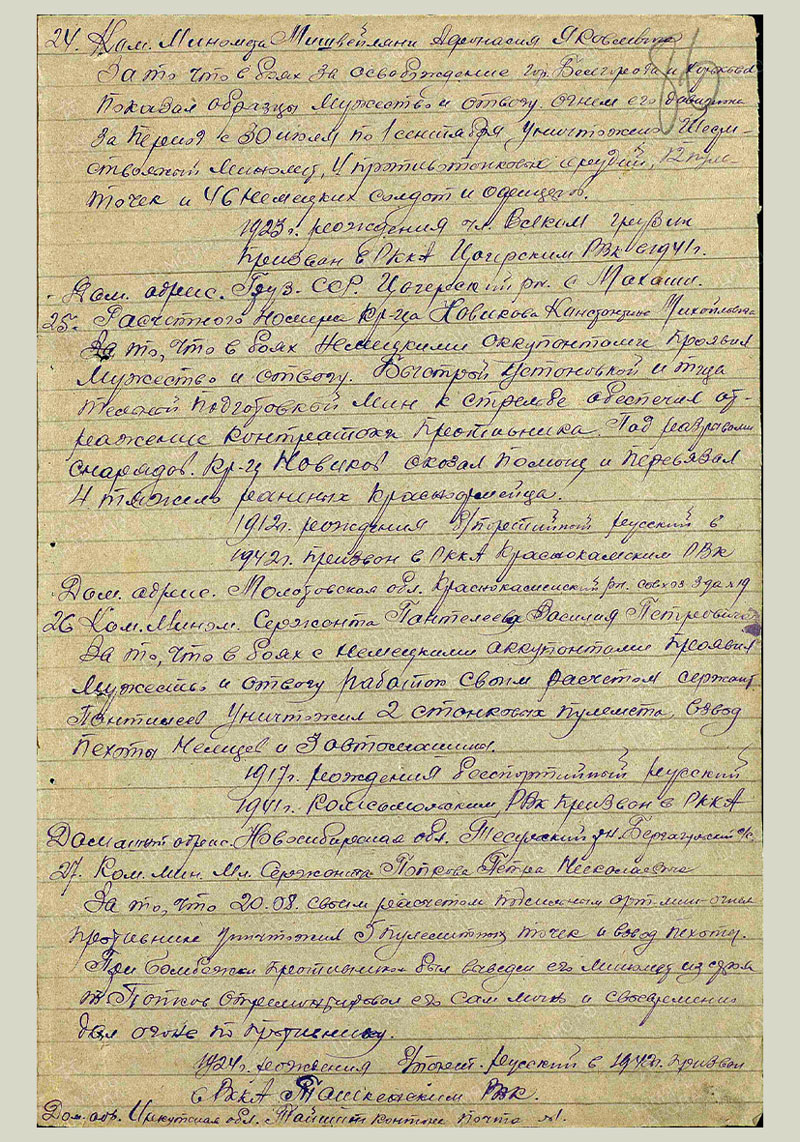 24. Ком. Миномета Мишвейляни Афонасия Яковлевича
За то что в боях за освобождение гор. Белгорода и Харькова
показал образцы мужество и отвогу. огнем его
за период с 30 июля по 1 сентября уничтожено Шести-
ствольный миномет, 4 противотонковых орудий, 12 пуле-
точек и 46 немецких солдот и офицеров.
1923г. рождения чл. Влксм грузин
призван в РККА Цагерским РВК в 1941г.
Дом. адрис. Груз. ССР. Цагерский рн. с Махаши.
25. Расчетного номера Кр-ца Новикова Константина Михойловича
За то, что в боях Немецкими оккупонтоми проявил
мужество и отвогу. Быстрой устоновкой и тща
тельной подготовкой мин к стрельбе обеспечил от-
ражение контратоки противника. Под разрывами
снарядов. Кр-ц Новиков оказал помощ и перевязал
4 тяжело раниных красноормейца.
1912г. рождения б/портийный русский в
1942г. призвон в РККА Краснокамским РВК
Дом. адрис. Молотовская обл. Краснокамский рн. совхоз
26 Ком. Мином. Сержонта Пантелеева Василия Петровича
За то, что в боях с немецкими оккупонтоми проявил
мужество и отвогу работоя своим расчетом сержонт
Пантилеев уничтожил 2 станковых пулемета, взвод
пехоты Немцев и 3 автомашины.
1917г. рождения беспортийный русский
1941г. Комсомольским РВК призвон в РККА
Домашний адрис. Новосибирская обл. Тесульский рн. Берчагульский
27. Ком. мин. Мл. Сержонта Попкова Петра Николаевича
За то, что 20.08. своим расчетом под сильным орт-мин-огнем
противнико уничтожил 5 пулеметных точек и взвод пехоты.
При бомбежки противником был выведен его миномет из строя
т. Попков отремонтировал его сам лично и своевременно
дал огонь по противнику.
1924г. рождения б/порт. русский в 1942г. призвон
в РККА РВК.
Дом. адр. Иркутская обл. Тайшит контора почта я1.